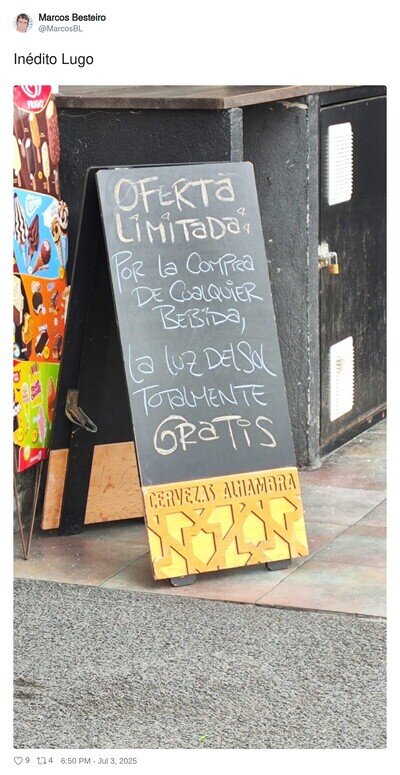 Marcos Besteiro
@MarcosBL
Inédito Lugo
FRIGO
OFERTA
LIMITADA:
POR LA COMPRA
DE CUALQUIER
BEBIDA,
LA LUZ DEL SOL
TOTALMENTE
GRATIS
CERVEZAS ALHAMBRA
9 4 6:50 PM - Jul 3, 2025